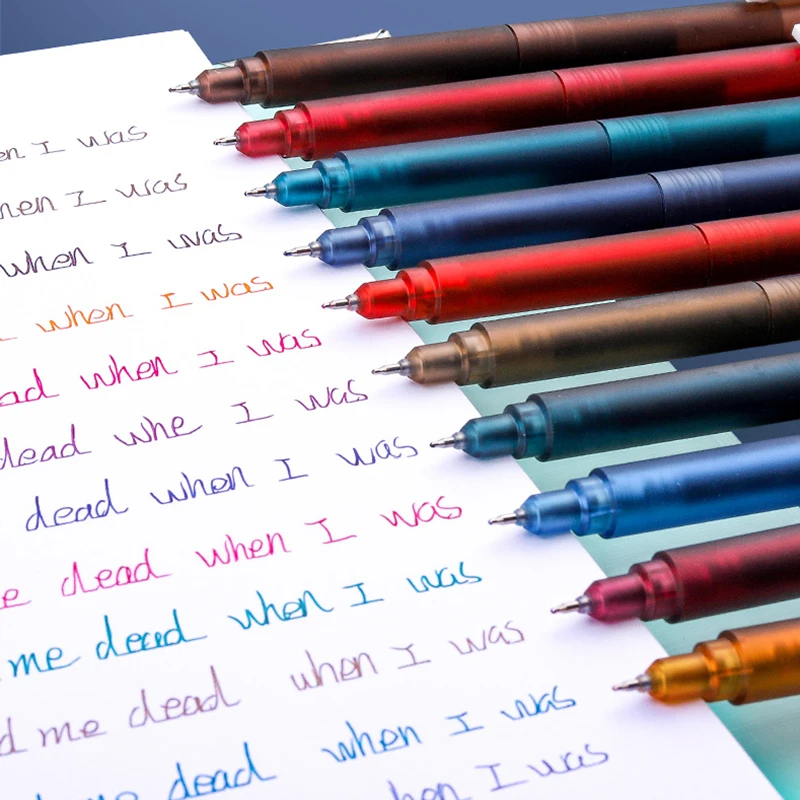 en I was
hen I was
when I was
when I was
ad when I was
dead whe I was
dead when I was
e dead when I was
me dead when I was
d me dead when I was
me dead when I was
hen I was